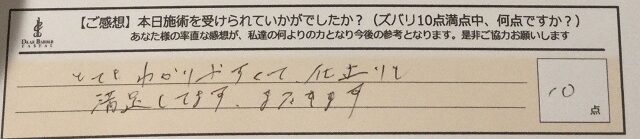 【ご感想】本日施術を受けられていかがでしたか？（ズバリ10点満点中、何点ですか？）
あなた様の率直な感想が、私達の何よりの力となり今後の参考となります。是非ご協力お願いします
DEAR BARBER
とてもわかりやすくて、仕上りも
満足してます。またきます
10
点